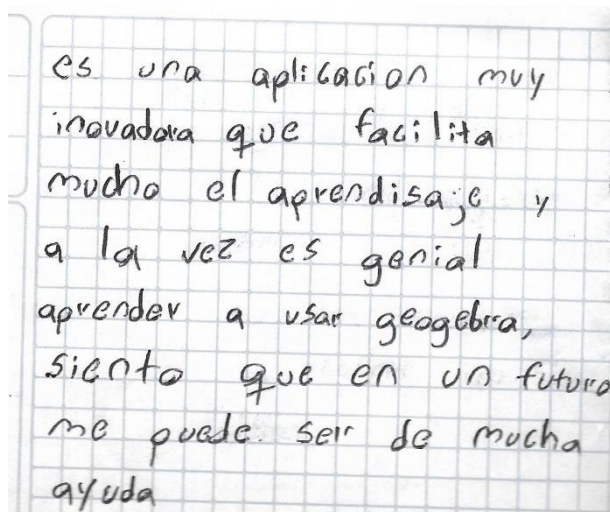 es una aplicacion muy
inovadora que facilita
mucho el aprendisaje y
a la vez es genial
aprender a usar geogebra,
siento que en un futuro
me puede ser de mucha
ayuda